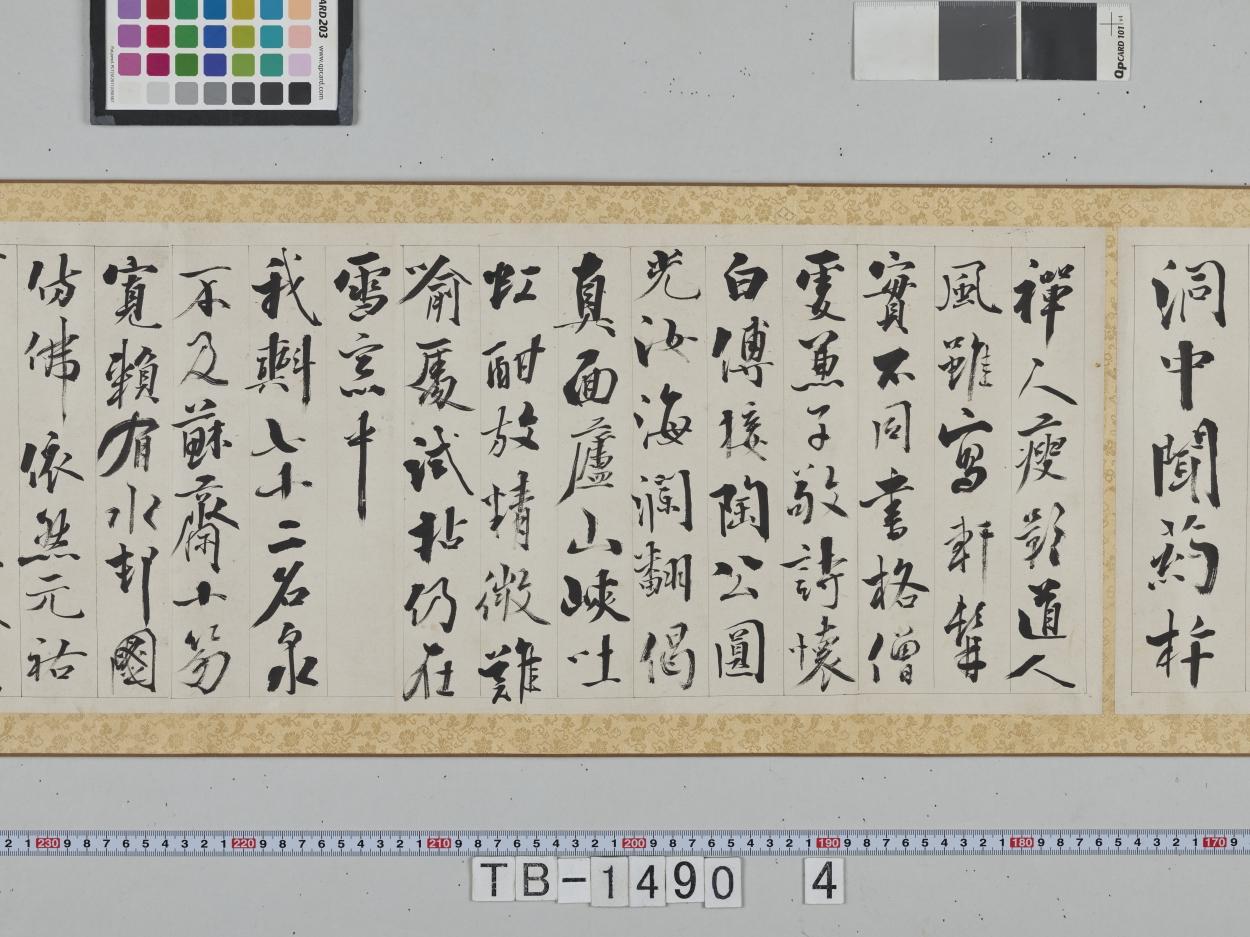 洞中聞葯杵
禪人瘦影道人
風雖寫軒髯
實不同書格僧
虔兼子敬詩懷
白傅接陶公圓
光汝海瀾翻偈
真面廬山峽吐
虹酣放精微難
喻處試拈仍在
雪窗中
我斟七十二名泉
不及蘇齋十笏
寬賴有水邨圖
仿佛依然元祐
CARD 203 www.qpcard.com
QPCARD 101 v4
2 1 230 9 8 7 6 5 4 3 2 1 220 9 8 7 6 5 4 3 2 1 210 9 8 7 6 5 4 3 2 1 200 9 8 7 6 5 4 3 2 1 190 9 8 7 6 5 4 3 2 1 180 9 8 7 6 5 4 3 2 1 170 9
TB-1490 4